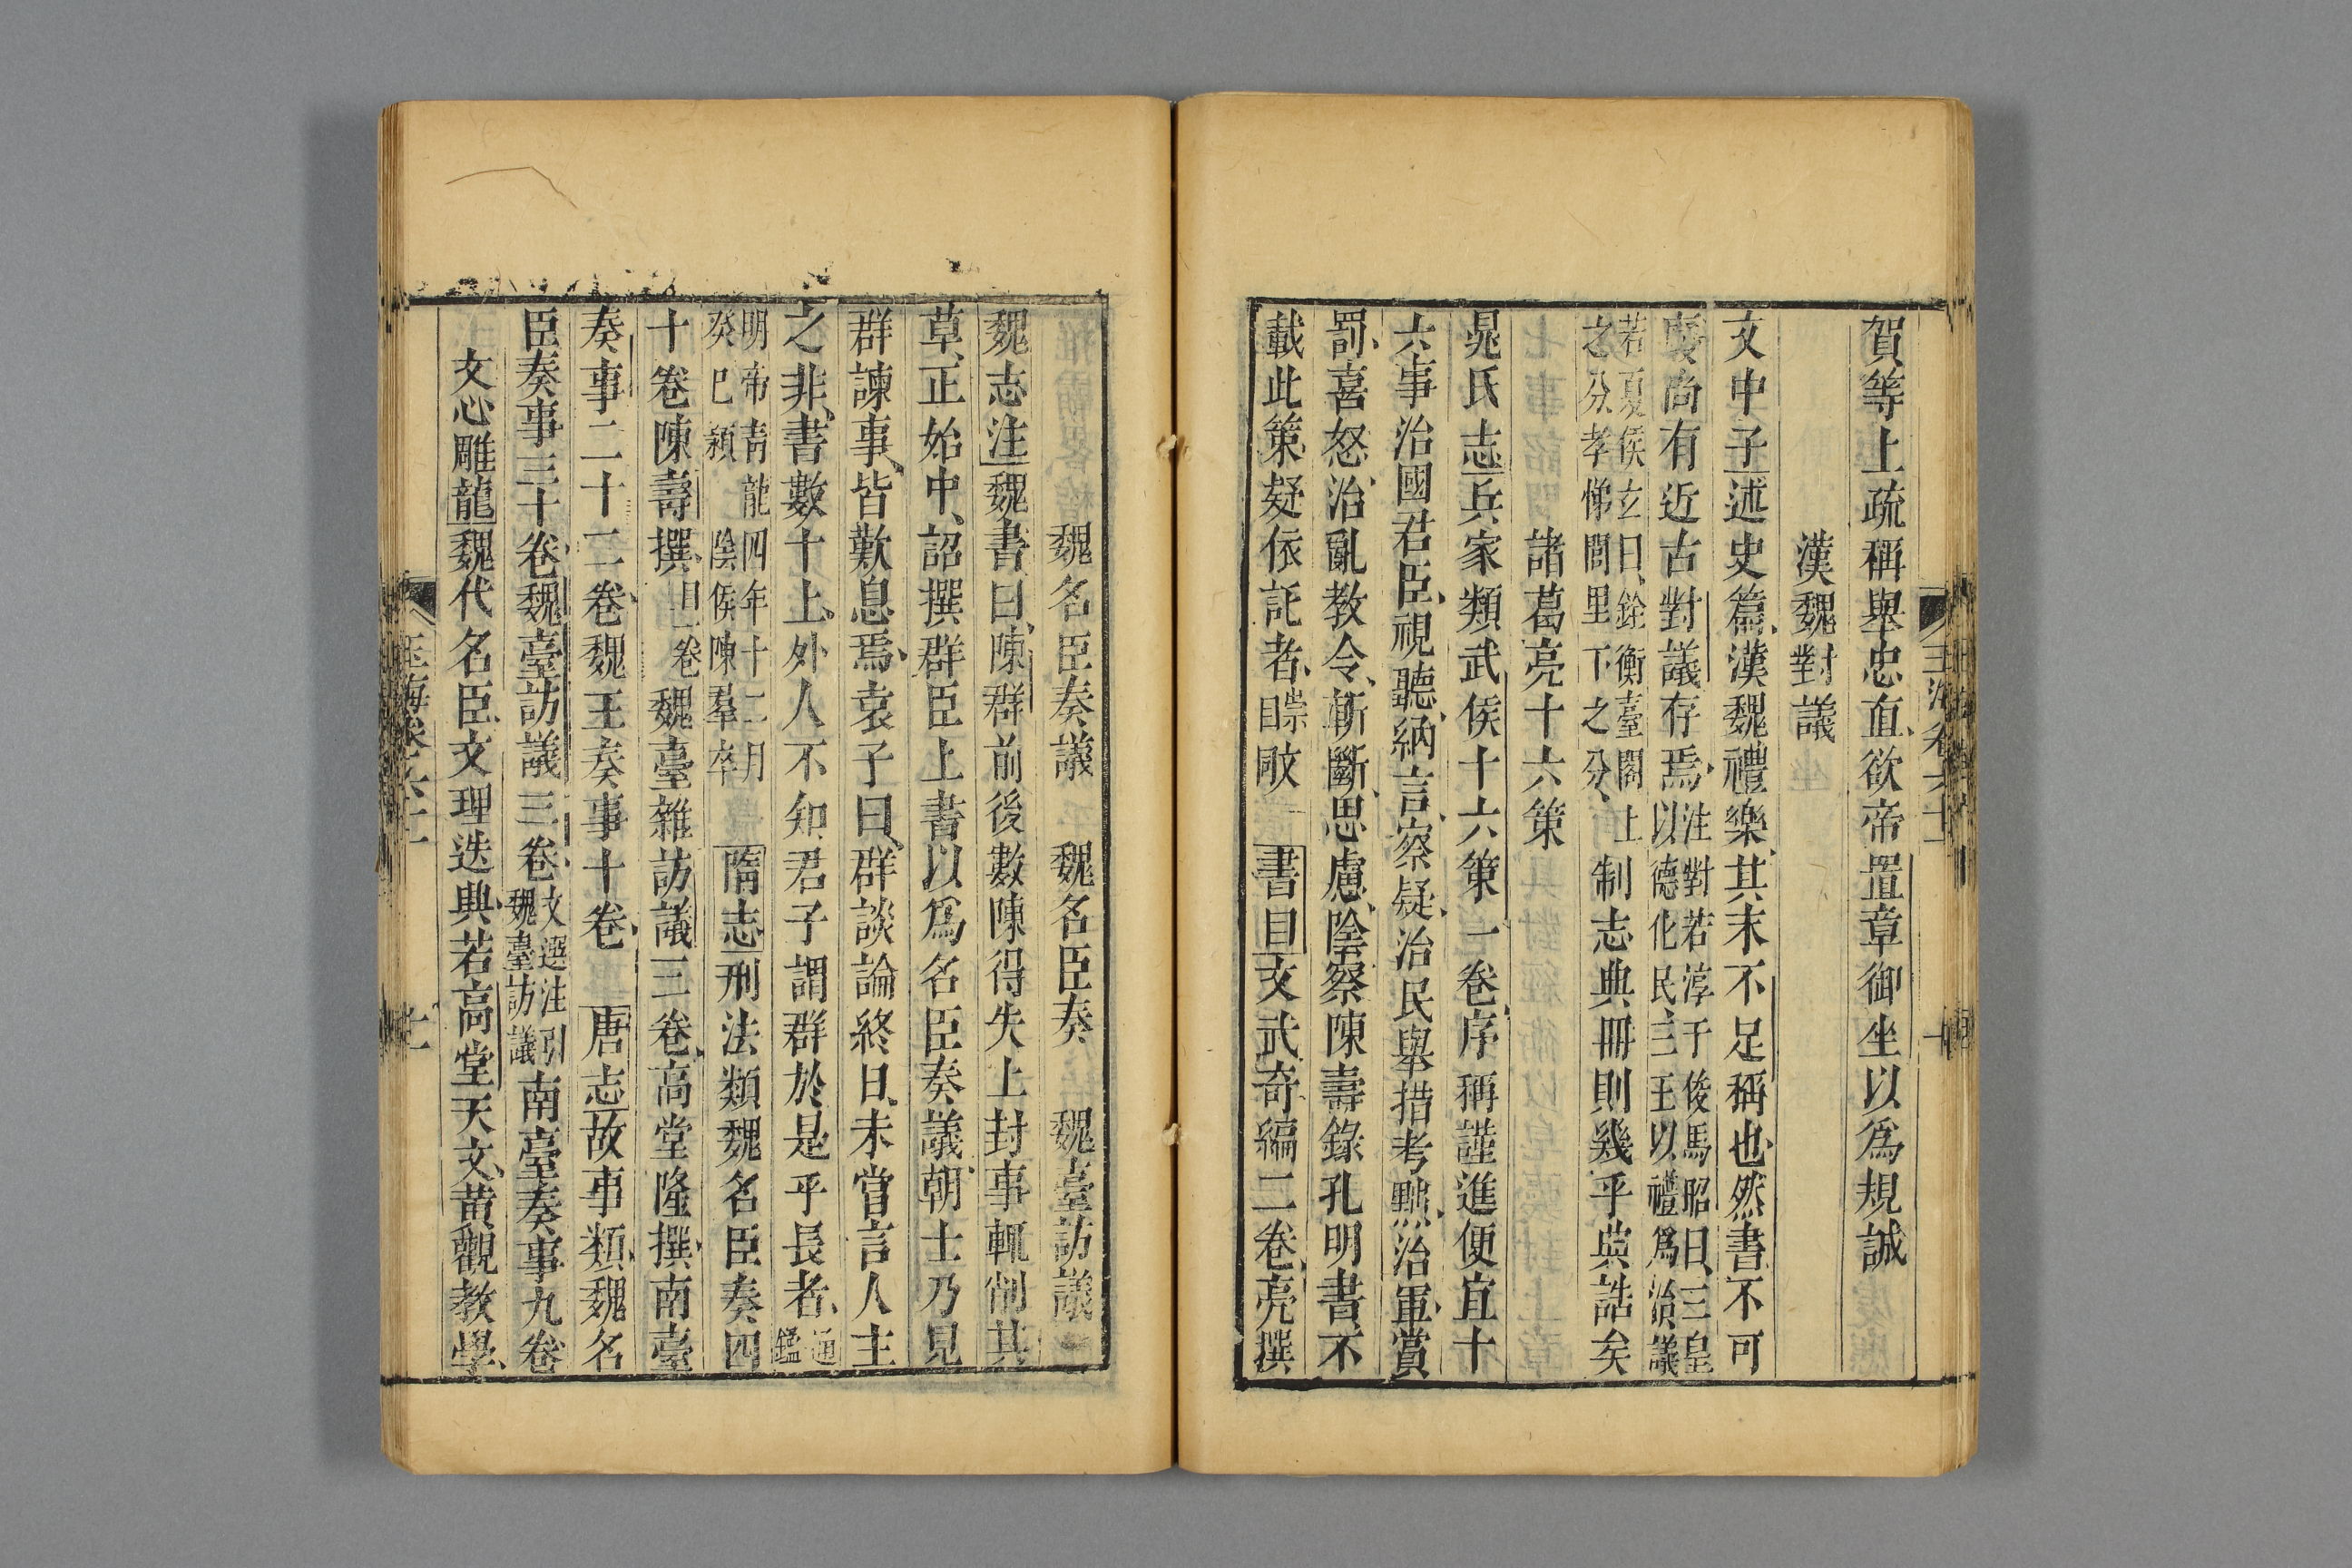 賀等上疏稱舉忠直欲帝置章御坐以爲規誠
漢魏對議
文中子述史篇漢魏禮樂其末不足稱也然書不可
廢尚有近古對議存焉注對若淳于俊馬昭曰三皇以德化民三王以禮爲治議
若夏侯玄曰銓衡臺閣上之分孝悌閭里下之分制志典冊則幾乎典誥矣
諸葛亮十六策
晁氏志兵家類武侯十六策一卷序稱謹進便宜十
六事治國君臣視聽納言察疑治民舉措考黜治軍賞
罰喜怒治亂教令斬斷思慮陰察陳壽錄孔明書不
載此策疑依託者崇目歐書目文武奇編二卷亮撰
魏名臣奏議 魏名臣奏 魏臺訪議
魏志注魏書曰陳群前後數陳得失上封事輒削其
草正始中詔撰群臣上書以爲名臣奏議朝士乃見
群諫事皆歎息焉袁子曰群談論終日未嘗言人主
之非書數十上外人不知君子謂群於是乎長者通鑑
明帝青龍四年十二月癸巳潁陰侯陳羣卒隋志刑法類魏名臣奏四
十卷陳壽撰目一卷魏臺雜訪議三卷高堂隆撰南臺
奏事二十二卷魏王奏事十卷 唐志故事類魏名
臣奏事三十卷魏臺訪議三卷文選注引魏臺訪議南臺奏事九卷
文心雕龍魏代名臣文理迭興若高堂天文黃觀教學
玉海卷六十一
十一